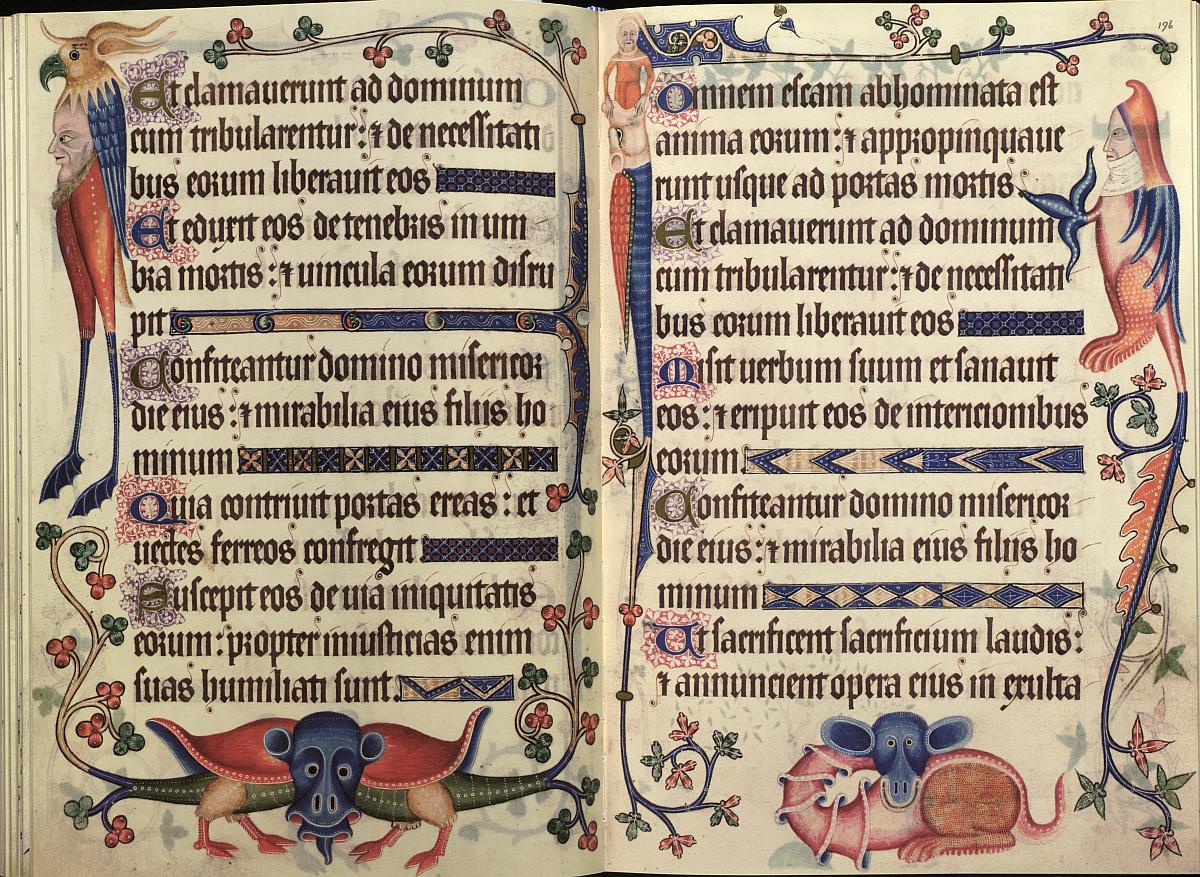 Et clamauerunt ad dominum
cum tribularentur: ⁊ de necessitati
bus eorum liberauit eos
Et eduxit eos de tenebris in um
bra mortis: ⁊ uincula eorum disru
pit
Confiteantur domino misericor
die eius: ⁊ mirabilia eius filiis ho
minum
Quia contriuit portas ereas: et
uectes ferreos confregit
Suscepit eos de uia iniquitatis
eorum: propter iniusticias enim
suas humiliati sunt.
196
Omnem escam abhominata est
anima eorum: ⁊ appropinquaue
runt usque ad portas mortis
Et clamauerunt ad dominum
cum tribularentur: ⁊ de necessitati
bus eorum liberauit eos
Misit uerbum suum et sanauit
eos: ⁊ eripuit eos de intericionibus
eorum.
Confiteantur domino misericor
die eius: ⁊ mirabilia eius filiis ho
minum
Ut sacrificent sacrificium laudis:
⁊ annuncient opera eius in exulta